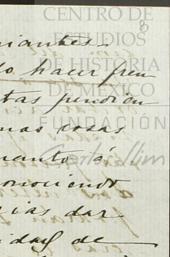 CENTRO DE
ESTUDIOS
DE HISTORIA
DE MÉXICO
FUNDACIÓN
Carlos Slim
8
riantes.
lo hacer fren
tas pension
nas cosas
mento á
onociendo
cias dar
dad de